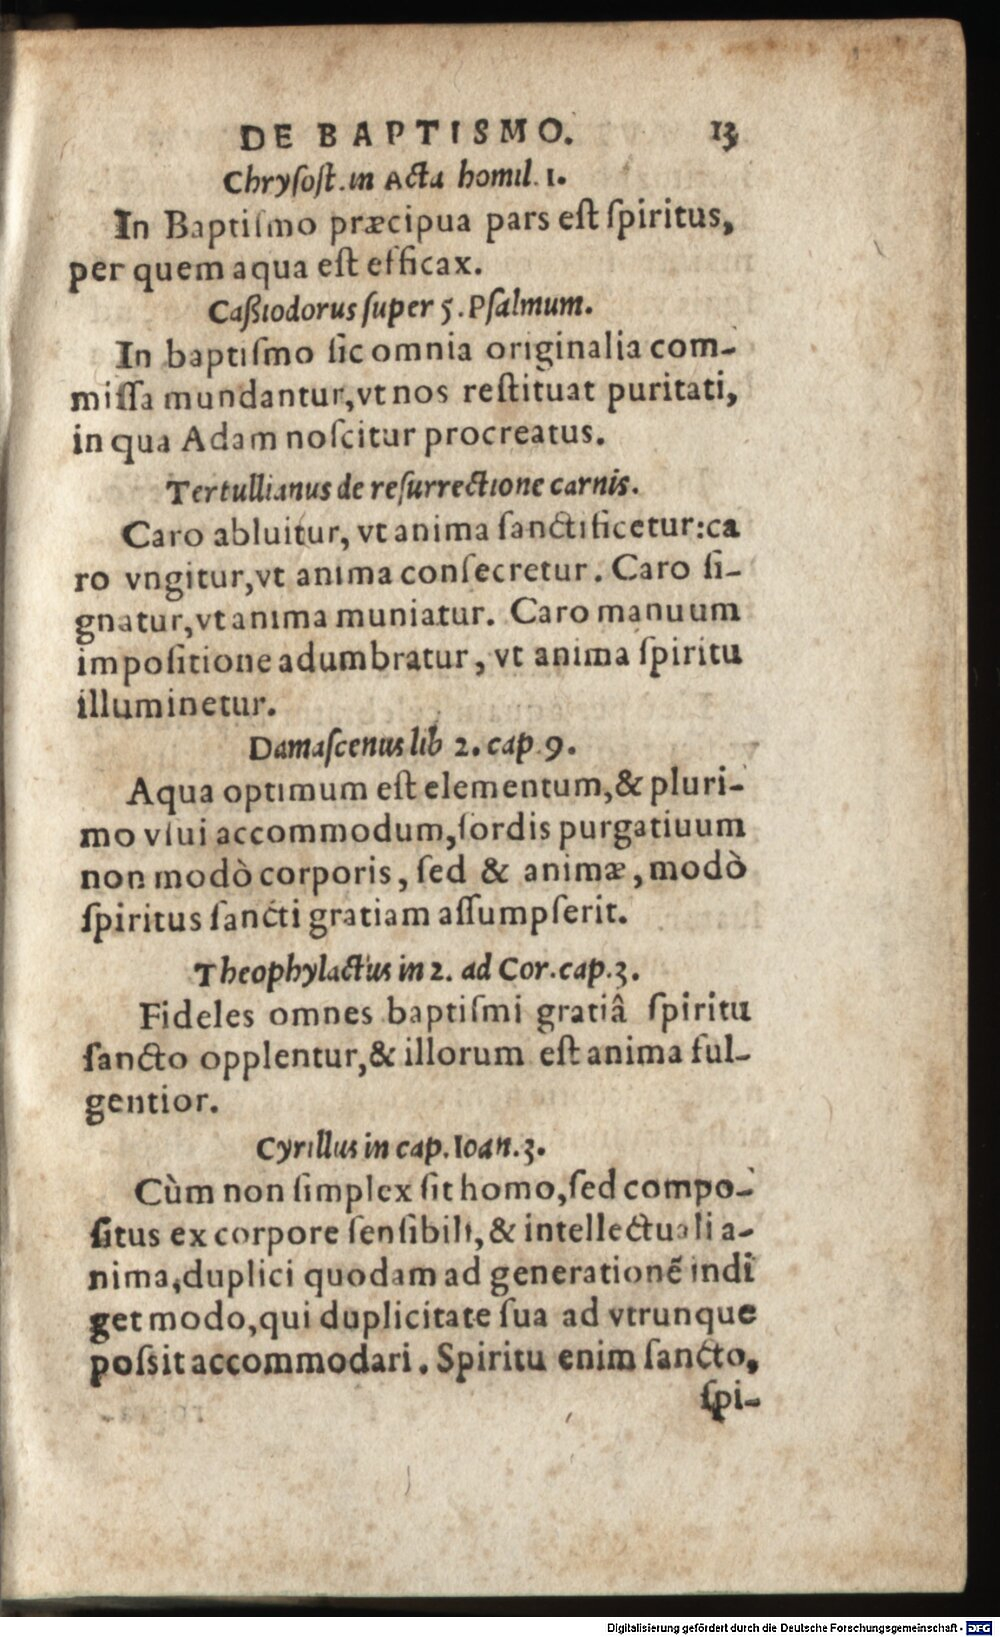 DE BAPTISMO. 13
Chrysoſt. in Acta homil. 1.
In Baptiſmo præcipua pars eſt ſpiritus,
per quem aqua eſt efficax.
Caßiodorus ſuper 5. Pſalmum.
In baptiſmo ſic omnia originalia com-
miſſa mundantur, vt nos reſtituat puritati,
in qua Adam noſcitur procreatus.
Tertullianus de reſurrectione carnis.
Caro abluitur, vt anima ſanctificetur: ca
ro vngitur, vt anima conſecretur. Caro ſi-
gnatur, vt anima muniatur. Caro manuum
impoſitione adumbratur, vt anima ſpiritu
illuminetur.
Damaſcenus lib 2. cap 9.
Aqua optimum eſt elementum, & pluri-
mo vſui accommodum, ſordis purgatiuum
non modò corporis, ſed & animæ, modò
ſpiritus ſancti gratiam aſſumpſerit.
Theophylactus in 2. ad Cor. cap. 3.
Fideles omnes baptiſmi gratiâ ſpiritu
ſancto opplentur, & illorum eſt anima ful-
gentior.
Cyrillus in cap. Ioan. 3.
Cùm non ſimplex ſit homo, ſed compo-
ſitus ex corpore ſenſibili, & intellectuali a-
nima, duplici quodam ad generationẽ indi
get modo, qui duplicitate ſua ad vtrunque
poſsit accommodari. Spiritu enim ſancto,
ſpi-
Digitalisierung gefördert durch die Deutsche Forschungsgemeinschaft - DFG